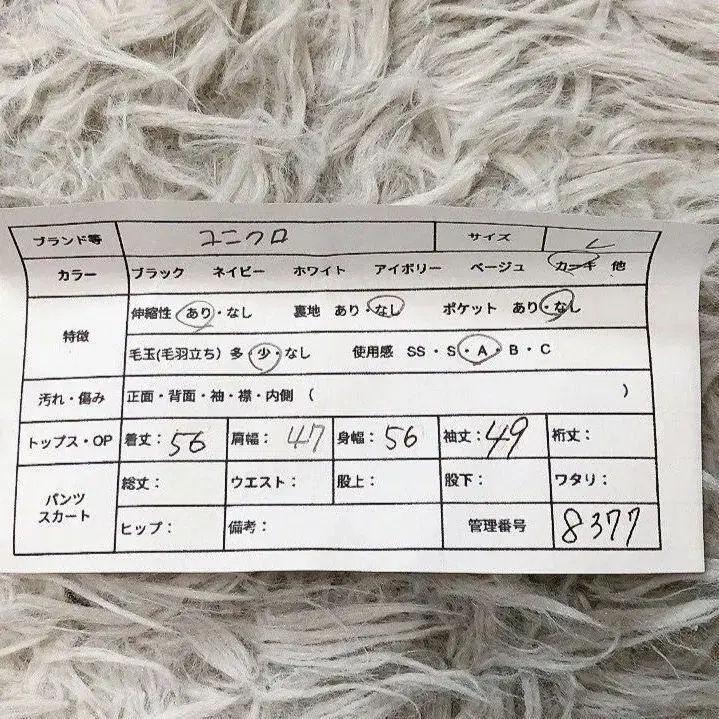 ブランド等 ユニクロ サイズ L
カラー ブラック ネイビー ホワイト アイボリー ベージュ カーキ 他
特徴 伸縮性 あり・なし 裏地 あり・なし ポケット あり・なし
毛玉(毛羽立ち) 多・少・なし 使用感 SS・S・A・B・C
汚れ・傷み 正面・背面・袖・襟・内側 ( )
トップス・OP 着丈：56 肩幅：47 身幅：56 袖丈：49 裄丈：
パンツ スカート 総丈： ウエスト： 股上： 股下： ワタリ：
ヒップ： 備考： 管理番号 8377